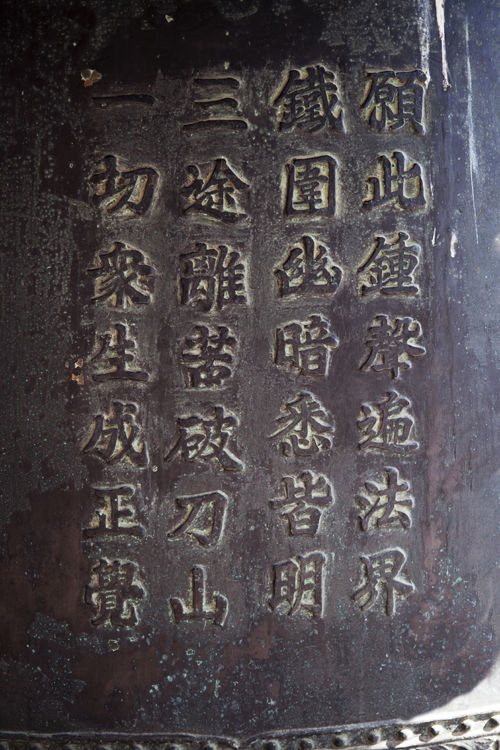 願此鍾聲遍法界
鐵圍幽暗悉皆明
三途離苦破刀山
一切眾生成正覺